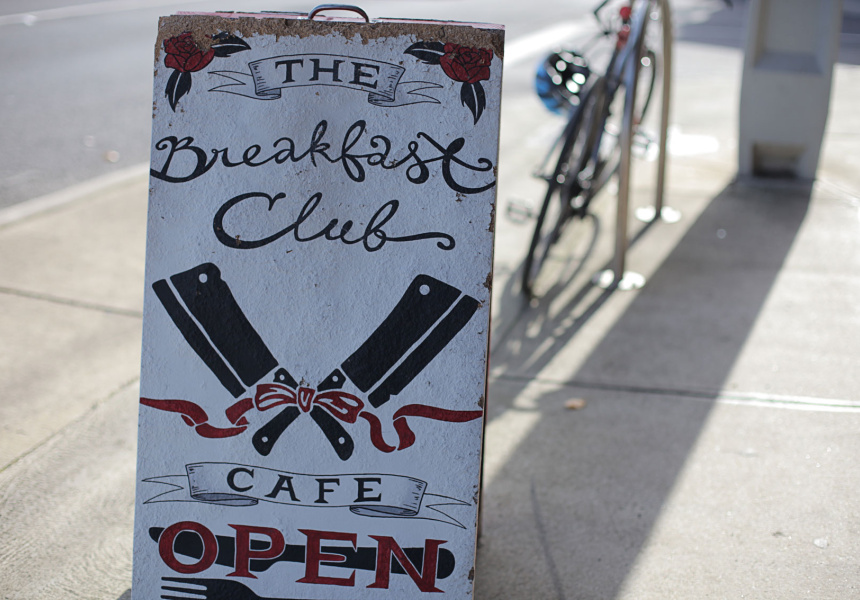 THE
Breakfast
Club
CAFE
OPEN